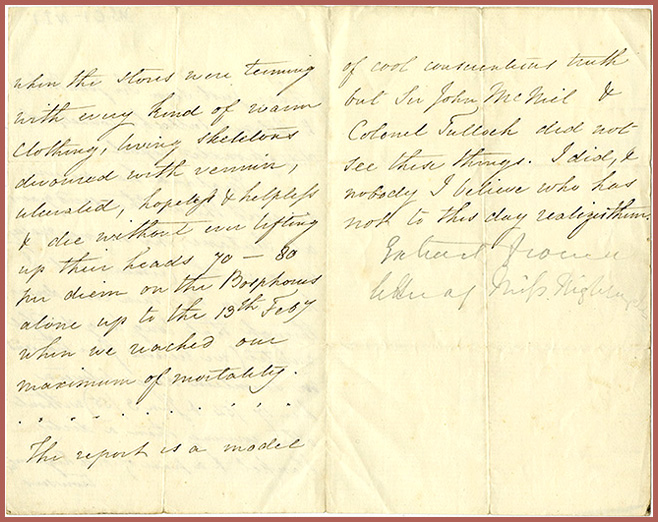 when the stores were teeming
with every kind of warm
clothing, living skeletons
devoured with vermin,
ulcerated, hopeless & helpless
& die without ever lifting
up their heads 70 – 80
per diem on the Bosphorus
alone up to the 13th Feby
when we reached our
maximum of mortality.
. . . . . . . . .
The report is a model
of cool conscientious truth
but Sir John McNiel &
Colonel Tulloch did not
see these things. I did, &
nobody I believe who has
not to this day realizes them.
Extract from a
letter of Miss Nightingale